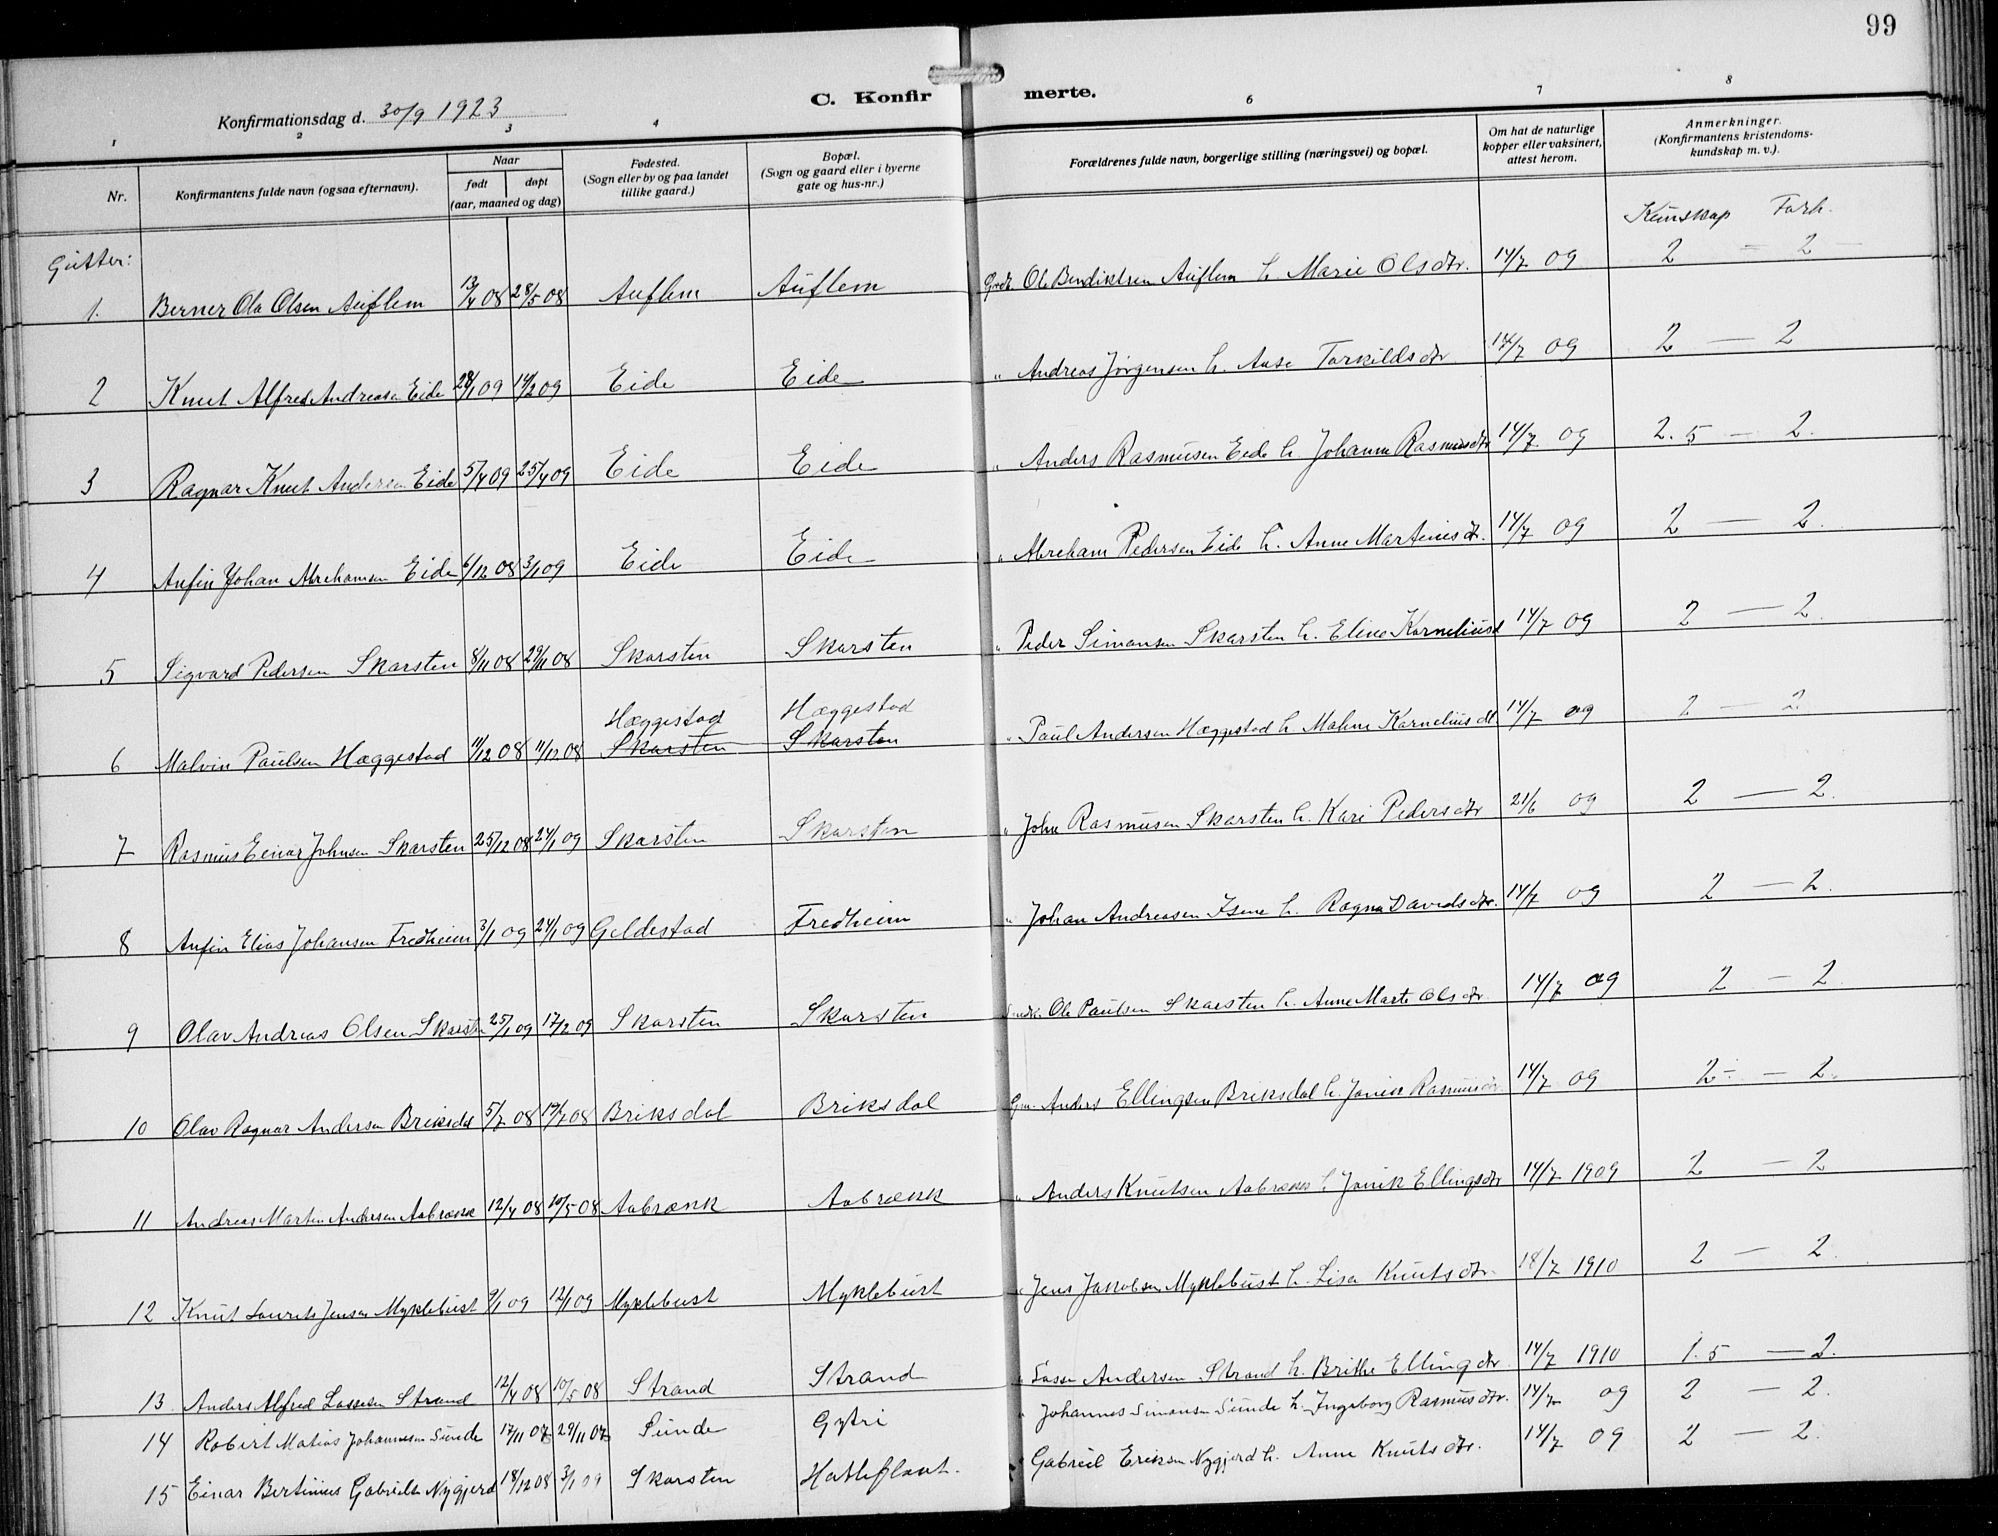 99
C. Konfirmerte.
Konfirmationsdag d. 30/9 1923
1 2 3 4 6 7 8
Nr. Konfirmantens fulde navn (ogsaa efternavn). Naar født døpt (aar, maaned og dag) Fødested. (Sogn eller by og paa landet tillike gaard.) Bopæl. (Sogn og gaard eller i byerne gate og hus-nr.) Forældrenes fulde navn, borgerlige stilling (næringsvei) og bopæl. Om hat de naturlige kopper eller vaksinert, attest herom. Anmerkninger. (Konfirmantens kristendoms-kundskap m. v.).
Kunskap Forh.
Gutter:
1. Berner Ola Olsen Auflem 13/4 08 28/5 08 Auflem Auflem Grdr. Ole Bendiktsen Auflem h. Marie Olsdtr. 14/7 09 2 — 2 —
2 Knut Alfred Andreasen Eide 28/1 09 14/2 09 Eide Eide " Andreas Jørgensen h. Aase Torkildsdtr 14/7 09 2 — 2
3 Ragnar Knut Andersen Eide 5/4 09 25/4 09 Eide Eide " Anders Rasmusen Eide h. Johanne Rasmusdtr 14/7 09 2.5 — 2.
4 Anfin Johan Abrehamsen Eide 6/12 08 3/1 09 Eide Eide " Abreham Pedersen Eide h. Anne Martinusdtr. 14/7 09 2 — 2.
5 Sigvard Pedersen Skarsten 8/11 08 29/11 08 Skarsten Skarsten " Peder Simonsen Skarsten h. Eline Korneliusd 14/7 09 2 — 2.
6 Malvin Paulsen Hæggestad 4/12 08 11/12 08 Hæggestad Skarsten Hæggestad Skarsten " Paul Andersen Hæggestad h. Malene Kornelius dt 14/7 09 2 — 2.
7 Rasmus Einar Johnsen Skarsten 25/12 08 24/1 09 Skarsten Skarsten " John Rasmusen Skarsten h. Kari Pedersdtr 21/6 09 2 — 2.
8 Anfin Elias Johansen Fredheim 3/1 09 24/1 09 Geldestad Fredheim " Johan Andreasen Isene h. Ragna Davidsdtr. 14/7 09 2 — 2.
9 Olav Andreas Olsen Skarsten 25/1 09 17/2 09 Skarsten Skarsten Ole Paulsen Skarsten h. Anne Marte Olsdtr. 14/7 09 2 — 2.
10 Olav Ragnar Andersen Briksdal 5/7 08 19/7 08 Briksdal Briksdal Anders Ellingsen Briksdal h. Janike Rasmusdtr. 14/7 09 2 — 2.
11 Andreas Marten Andersen Aabrækk 12/4 08 10/5 08 Aabrækk Aabrækk " Anders Knutsen Aabrækk h. Janik Ellingsdtr 14/7 1909 2 — 2
12 Knut Laurits Jensen Myklebust 9/1 09 12/1 09 Myklebust Myklebust " Jens Jakobsen Myklebust h. Lisa Knutsdtr. 18/7 1910 2 — 2.
13. Anders Alfred Lassesen Strand 12/4 08 10/5 08 Strand Strand " Lasse Andersen Strand h. Brithe Ellingdtr. 14/7 1910 1.5 — 2.
14 Robert Matias Johannesen Sunde 17/11 07 29/11 07 Sunde Gytri " Johannes Simonsen Sunde h. Ingeborg Rasmusdtr. 14/7 09 2 — 2.
15 Einar Bertinius Gabrielsen Nygjerd 18/12 08 3/1 09 Skarsten Hatleflaat. Gabriel Eriksen Nygjerd h. Anne Knutsdtr. 14/7 09 2 — 2.